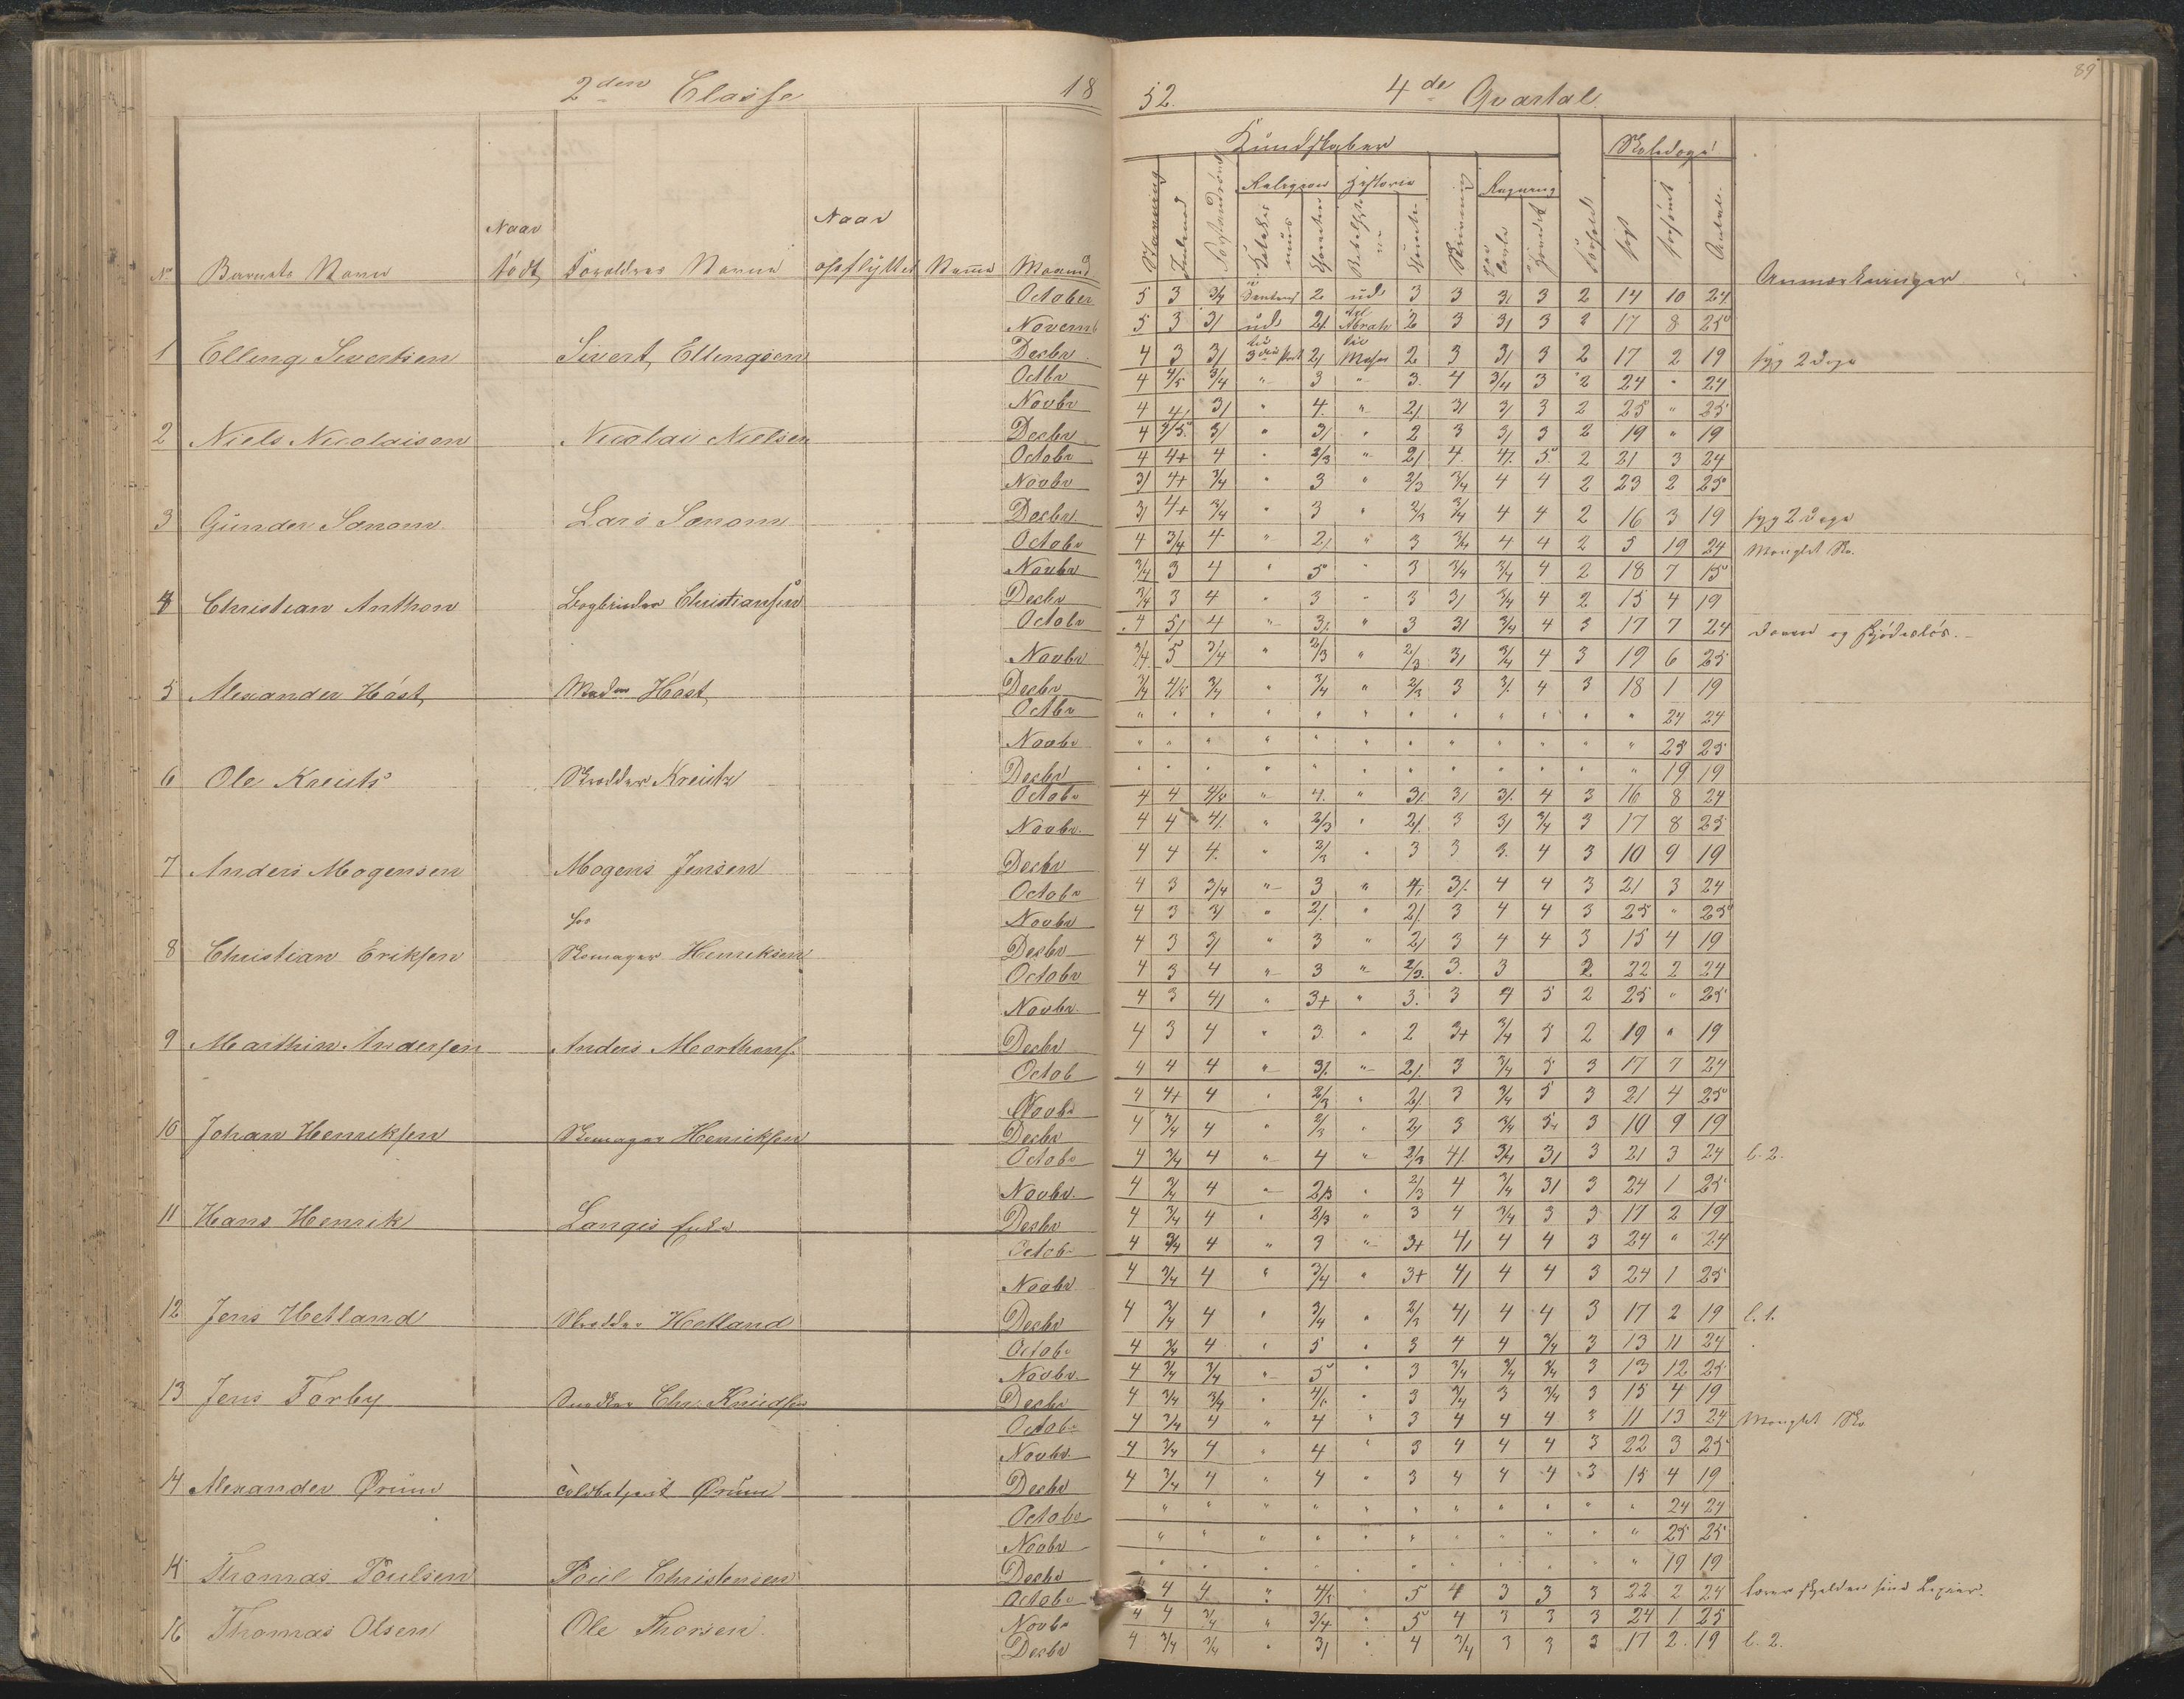 89
2den Classe 18
52. 4de Qvartal
Kundskaber Skoledage
Religion Historie Regning
No Barnets Navn Naar født Forældres Navn Naar opflyttet Navne Maaned Stavning Skrivning søgt forsømt Antal Anmærkninger
October 5 3 3/4 2 ud 3 3 3/ 3 2 14 10 24
Novemb 5 3 3/ ud 2/ Abrah 2 3 3/ 3 2 17 8 25
1 Elling Sivertsen Sivert Ellingsen Decbr 4 3 3/ 2/ Moses 2 3 3/ 3 2 17 2 19 syg 2 dage
Octbr 4 4/5 3/4 " 3 " 3. 4 3/4 3 2 24 " 24
Novbr 4 4/ 3/ " 4. " 2/ 3/ 3/ 3 2 25 " 25
2 Niels Nicolaisen Nicolai Nielsen Decbr 4 3/ " 3/ " 2 3 3/ 3 2 19 " 19
Octobr 4 4+ 4 " 2/3 " 2/ 4. 4/. 5 2 21 3 24
Novbr 3/ 4+ 3/4 " 3 " 2/3 3/4 4 4 2 23 2 25
3 Gunder Lars Decbr 3/ 4+ 3/4 " 3 " 2/3 3/4 4 4 2 16 3 19 syg 2 dage
Octobr 4 3/4 4 " 2/ " 3 3/4 4 4 2 5 19 24 Manglet Sko.
Novbr 3/4 3 4 " 5 " 3 3/4 3/4 4 2 18 7 15
4 Christian Anthon Bogbinder Christiansen Decbr 3/4 3 4 " 3 " 3 3/ 3/4 4 2 15 4 19
Octobr 4 5/ 4 " 3/. " 3 3/ 3/4 4 3 17 7 24 doven og skjødesløs.
Novbr 3/4 5 3/4 " 2/3 " 2/3 3/ 3/4 4 3 19 6 25
5 Alexander Høst Madm Høst Decbr 3/4 4/5 3/4 " 3/4 " 2/3 3 3/. 4 3 18 1 19
Octbr " " " " " " " " " " " " 24 24
Novbr " " " " " " " " " " " " 25 25
6 Ole Kreutz Skrædder Kreutz Decbr " " " " " " " " " " " " 19 19
Octobr 4 4 4/5 " 4. " 3/. 3/ 3/. 4 3 16 8 24
Novbr. 4 4 4/. " 2/3 " 2/. 3 3/ 3/4 3 17 8 25
7 Anders Mogensen Mogens Jensen Decbr 4 4 4. " 2/3 " 3 3 3. 4 3 10 9 19
Octobr 4 3 3/4 " 3 " 4/ 3/. 4 4 3 21 3 24
hos
Novbr 4 3 3/ " 2/. " 2/. 3 4 4 3 25 " 25
8 Christian Eriksen Skomager Henriksen Decbr 4 3 3/ " 3 " 2/ 3 4 4 3 15 4 19
Octobr 4 3 4 " 3 " 2/3. 3. 3 2 22 2 24
Novbr. 4 3 4/ " 3+ " 3. 3 4 5 2 25 " 25
9 Marthin Andersen Anders Marthens. Decbr 4 3 4 " 3 " 2 3+ 3/4 5 2 19 " 19
Octob 4 4 4 " 3/. " 2/. 3 3/4 5 3 17 7 24
Novbr 4 4+ 4 " 2/3 " 2/ 3 3/4 5 3 21 4 25
10 Johan Henriksen Skomager Henriksen Decbr 4 3/4 4 " 2/3 " 2/ 3 3/4 3 10 9 19
Octobr 4 3/4 4 " 4 " 2/3 4/. 3/4 3/ 3 21 3 24 l. 2.
Novbr. 4 3/4 4 " 2/3 " 2/3 4 3/4 3/ 3 24 1 25
11 Hans Henrik Langes Enke Decbr 4 3/4 4 " 2/3 " 3 4 3/4 3 3 17 2 19
Octobr 4 3/4 4 " 3 " 3+ 4/ 4 4 3 24 " 24
Novbr 4 3/4 4 " 3/4 " 3+ 4/ 4 4 3 24 1 25
12 Jens Hetland Skrædder Hetland Decbr 4 3/4 4 " 3/4 " 2/3 4/ 4 4 3 17 2 19 l. 1.
Octobr 4 3/4 4 " 5 " 3 4 4 3/4 3 13 11 24
Novbr. 4 3/4 3/4 " 5 " 3 3/4 3/4 3/4 3 13 12 25
13 Jens Torby Snedker Chr. Knudsen Decbr 4 3/4 3/4 " 4/5 " 3 3/4 3 3/4 3 15 4 19
Octobr 4 3/4 4 " 4 " 3 4 4 4 3 11 13 24 Manglet Sko
Novbr. 4 3/4 4 " 4 " 3 4 4 4 3 22 3 25
14 Alexander Ørum Ørum Decbr 4 3/4 4 " 4 " 3 4 4 4 3 15 4 19
Octobr " " " " " " " " " " " 24 24
Novbr " " " " " " " " " " " 25 25
15 Thomas Poulsen Poul Christensen Decbr " " " " " " " " " " " 19 19
Octobr 4 4 " 4/5 " 5 4 3 3 3 22 2 24 lærer sjelden sine Lexier.
16 Thomas Olsen Ole Thorsen. Novbr 4 4 3/4 " 3/4 " 5 4 3 3 3 24 1 25
Decbr 4 3/4 3/4 " 3/ " 4 3/4 3 3 3 17 2. 19 l. 2.